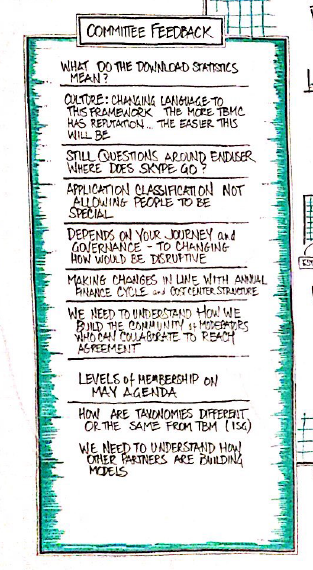 COMMITTEE FEEDBACK
WHAT DO THE DOWNLOAD STATISTICS
MEAN?
CULTURE: CHANGING LANGUAGE TO
THIS FRAMEWORK THE MORE TBMC
HAS REPUTATION... THE EASIER THIS
WILL BE
STILL QUESTIONS AROUND ENDUSER
WHERE DOES SKYPE GO?
APPLICATION CLASSIFICATION NOT
ALLOWING PEOPLE TO BE
SPECIAL
DEPENDS ON YOUR JOURNEY and
GOVERNANCE - TO CHANGING
HOW WOULD BE DISRUPTIVE
MAKING CHANGES IN LINE WITH ANNUAL
FINANCE CYCLE and COST CENTER STRUCTURE
WE NEED TO UNDERSTAND HOW WE
BUILD THE COMMUNITY of MODERATORS
WHO CAN COLLABORATE TO REACH
AGREEMENT
LEVELS of MEMBERSHIP ON
MAY AGENDA
HOW ARE TAXONOMIES DIFFERENT
OR THE SAME FROM TBM (ISG)
WE NEED TO UNDERSTAND HOW
OTHER PARTNERS ARE BUILDING
MODELS